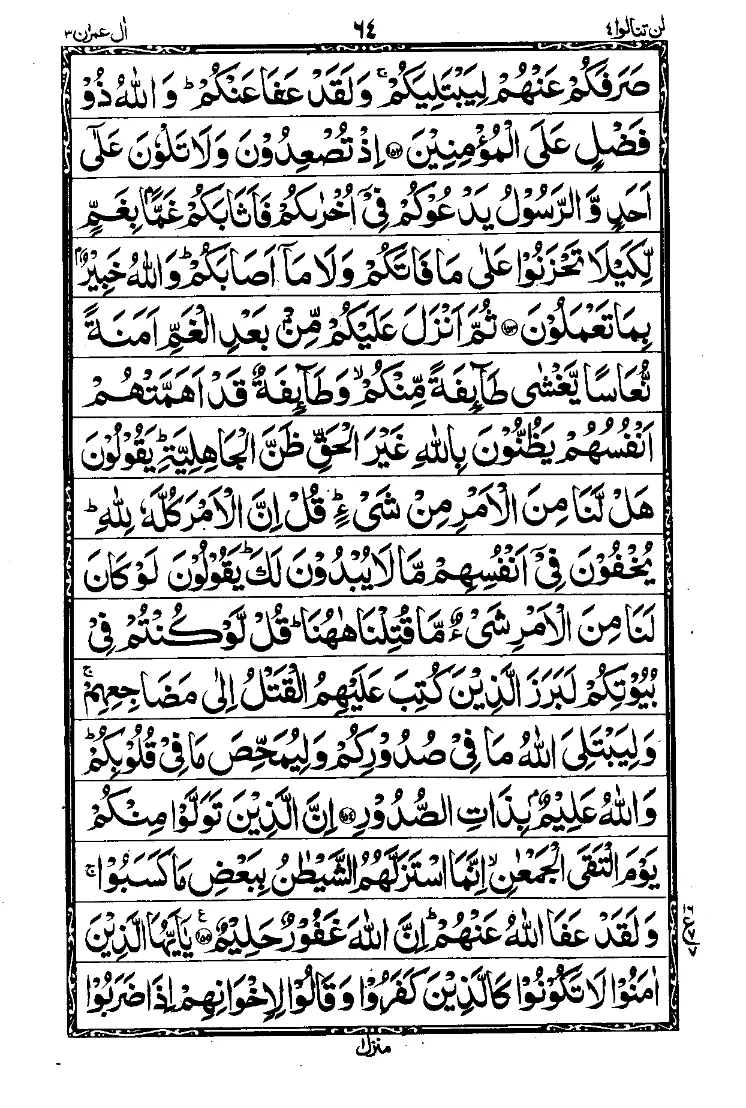 لن تنالوا٤ ٦٤ اٰل عمرٰن٣
صَرَفَكُمْ عَنْهُمْ لِيَبْتَلِيَكُمْ ۚ وَلَقَدْ عَفَا عَنْكُمْ ؕ وَاللّٰهُ ذُوْ
فَضْلٍ عَلَى الْمُؤْمِنِيْنَ ﴿۱۵۲﴾ اِذْ تُصْعِدُوْنَ وَلَا تَلْوٗنَ عَلٰٓى
اَحَدٍ وَّالرَّسُوْلُ يَدْعُوْكُمْ فِيْۤ اُخْرٰىكُمْ فَاَثَابَكُمْ غَمًّۢا بِغَمٍّ
لِّكَيْلَا تَحْزَنُوْا عَلٰى مَا فَاتَكُمْ وَلَا مَاۤ اَصَابَكُمْ ؕ وَاللّٰهُ خَبِيْرٌۢ
بِمَا تَعْمَلُوْنَ ﴿۱۵۳﴾ ثُمَّ اَنْزَلَ عَلَيْكُمْ مِّنْۢ بَعْدِ الْغَمِّ اَمَنَةً
نُّعَاسًا يَّغْشٰى طَآئِفَةً مِّنْكُمْ ۙ وَطَآئِفَةٌ قَدْ اَهَمَّتْهُمْ
اَنْفُسُهُمْ يَظُنُّوْنَ بِاللّٰهِ غَيْرَ الْحَقِّ ظَنَّ الْجَاهِلِيَّةِ ؕ يَقُوْلُوْنَ
هَلْ لَّنَا مِنَ الْاَمْرِ مِنْ شَیْءٍ ؕ قُلْ اِنَّ الْاَمْرَ كُلَّهٗ لِلّٰهِ ؕ
يُخْفُوْنَ فِيْۤ اَنْفُسِهِمْ مَّا لَا يُبْدُوْنَ لَكَ ؕ يَقُوْلُوْنَ لَوْ كَانَ
لَنَا مِنَ الْاَمْرِ شَیْءٌ مَّا قُتِلْنَا هٰهُنَا ؕ قُلْ لَّوْ كُنْتُمْ فِيْ
بُيُوْتِكُمْ لَبَرَزَ الَّذِيْنَ كُتِبَ عَلَيْهِمُ الْقَتْلُ اِلٰى مَضَاجِعِهِمْ ۚ
وَلِيَبْتَلِيَ اللّٰهُ مَا فِيْ صُدُوْرِكُمْ وَلِيُمَحِّصَ مَا فِيْ قُلُوْبِكُمْ ؕ
وَاللّٰهُ عَلِيْمٌۢ بِذَاتِ الصُّدُوْرِ ﴿۱۵۴﴾ اِنَّ الَّذِيْنَ تَوَلَّوْا مِنْكُمْ
يَوْمَ الْتَقَى الْجَمْعٰنِ ۙ اِنَّمَا اسْتَزَلَّهُمُ الشَّيْطٰنُ بِبَعْضِ مَا كَسَبُوْا ۚ
وَلَقَدْ عَفَا اللّٰهُ عَنْهُمْ ؕ اِنَّ اللّٰهَ غَفُوْرٌ حَلِيْمٌ ﴿۱۵۵﴾ يٰۤاَيُّهَا الَّذِيْنَ
اٰمَنُوْا لَا تَكُوْنُوْا كَالَّذِيْنَ كَفَرُوْا وَقَالُوْا لِاِخْوَانِهِمْ اِذَا ضَرَبُوْا
منزل١